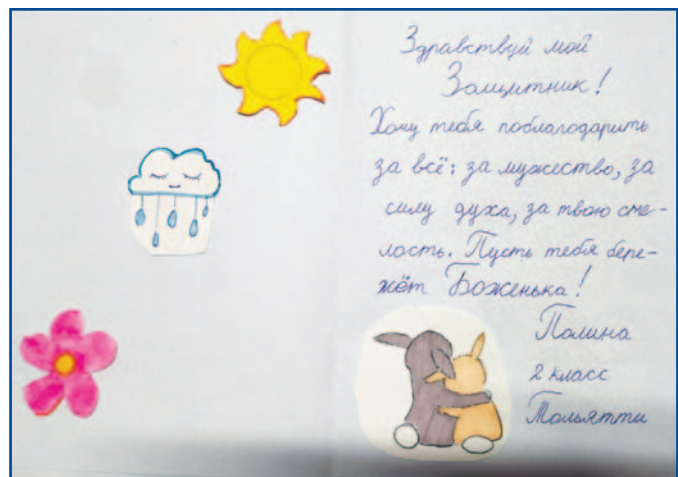 Здравствуй мой
Защитник!
Хочу тебя поблагодарить
за всё: за мужество, за
силу духа, за твою сме-
лость. Пусть тебя бере-
жёт Боженька!
Полина
2 класс
Тольятти